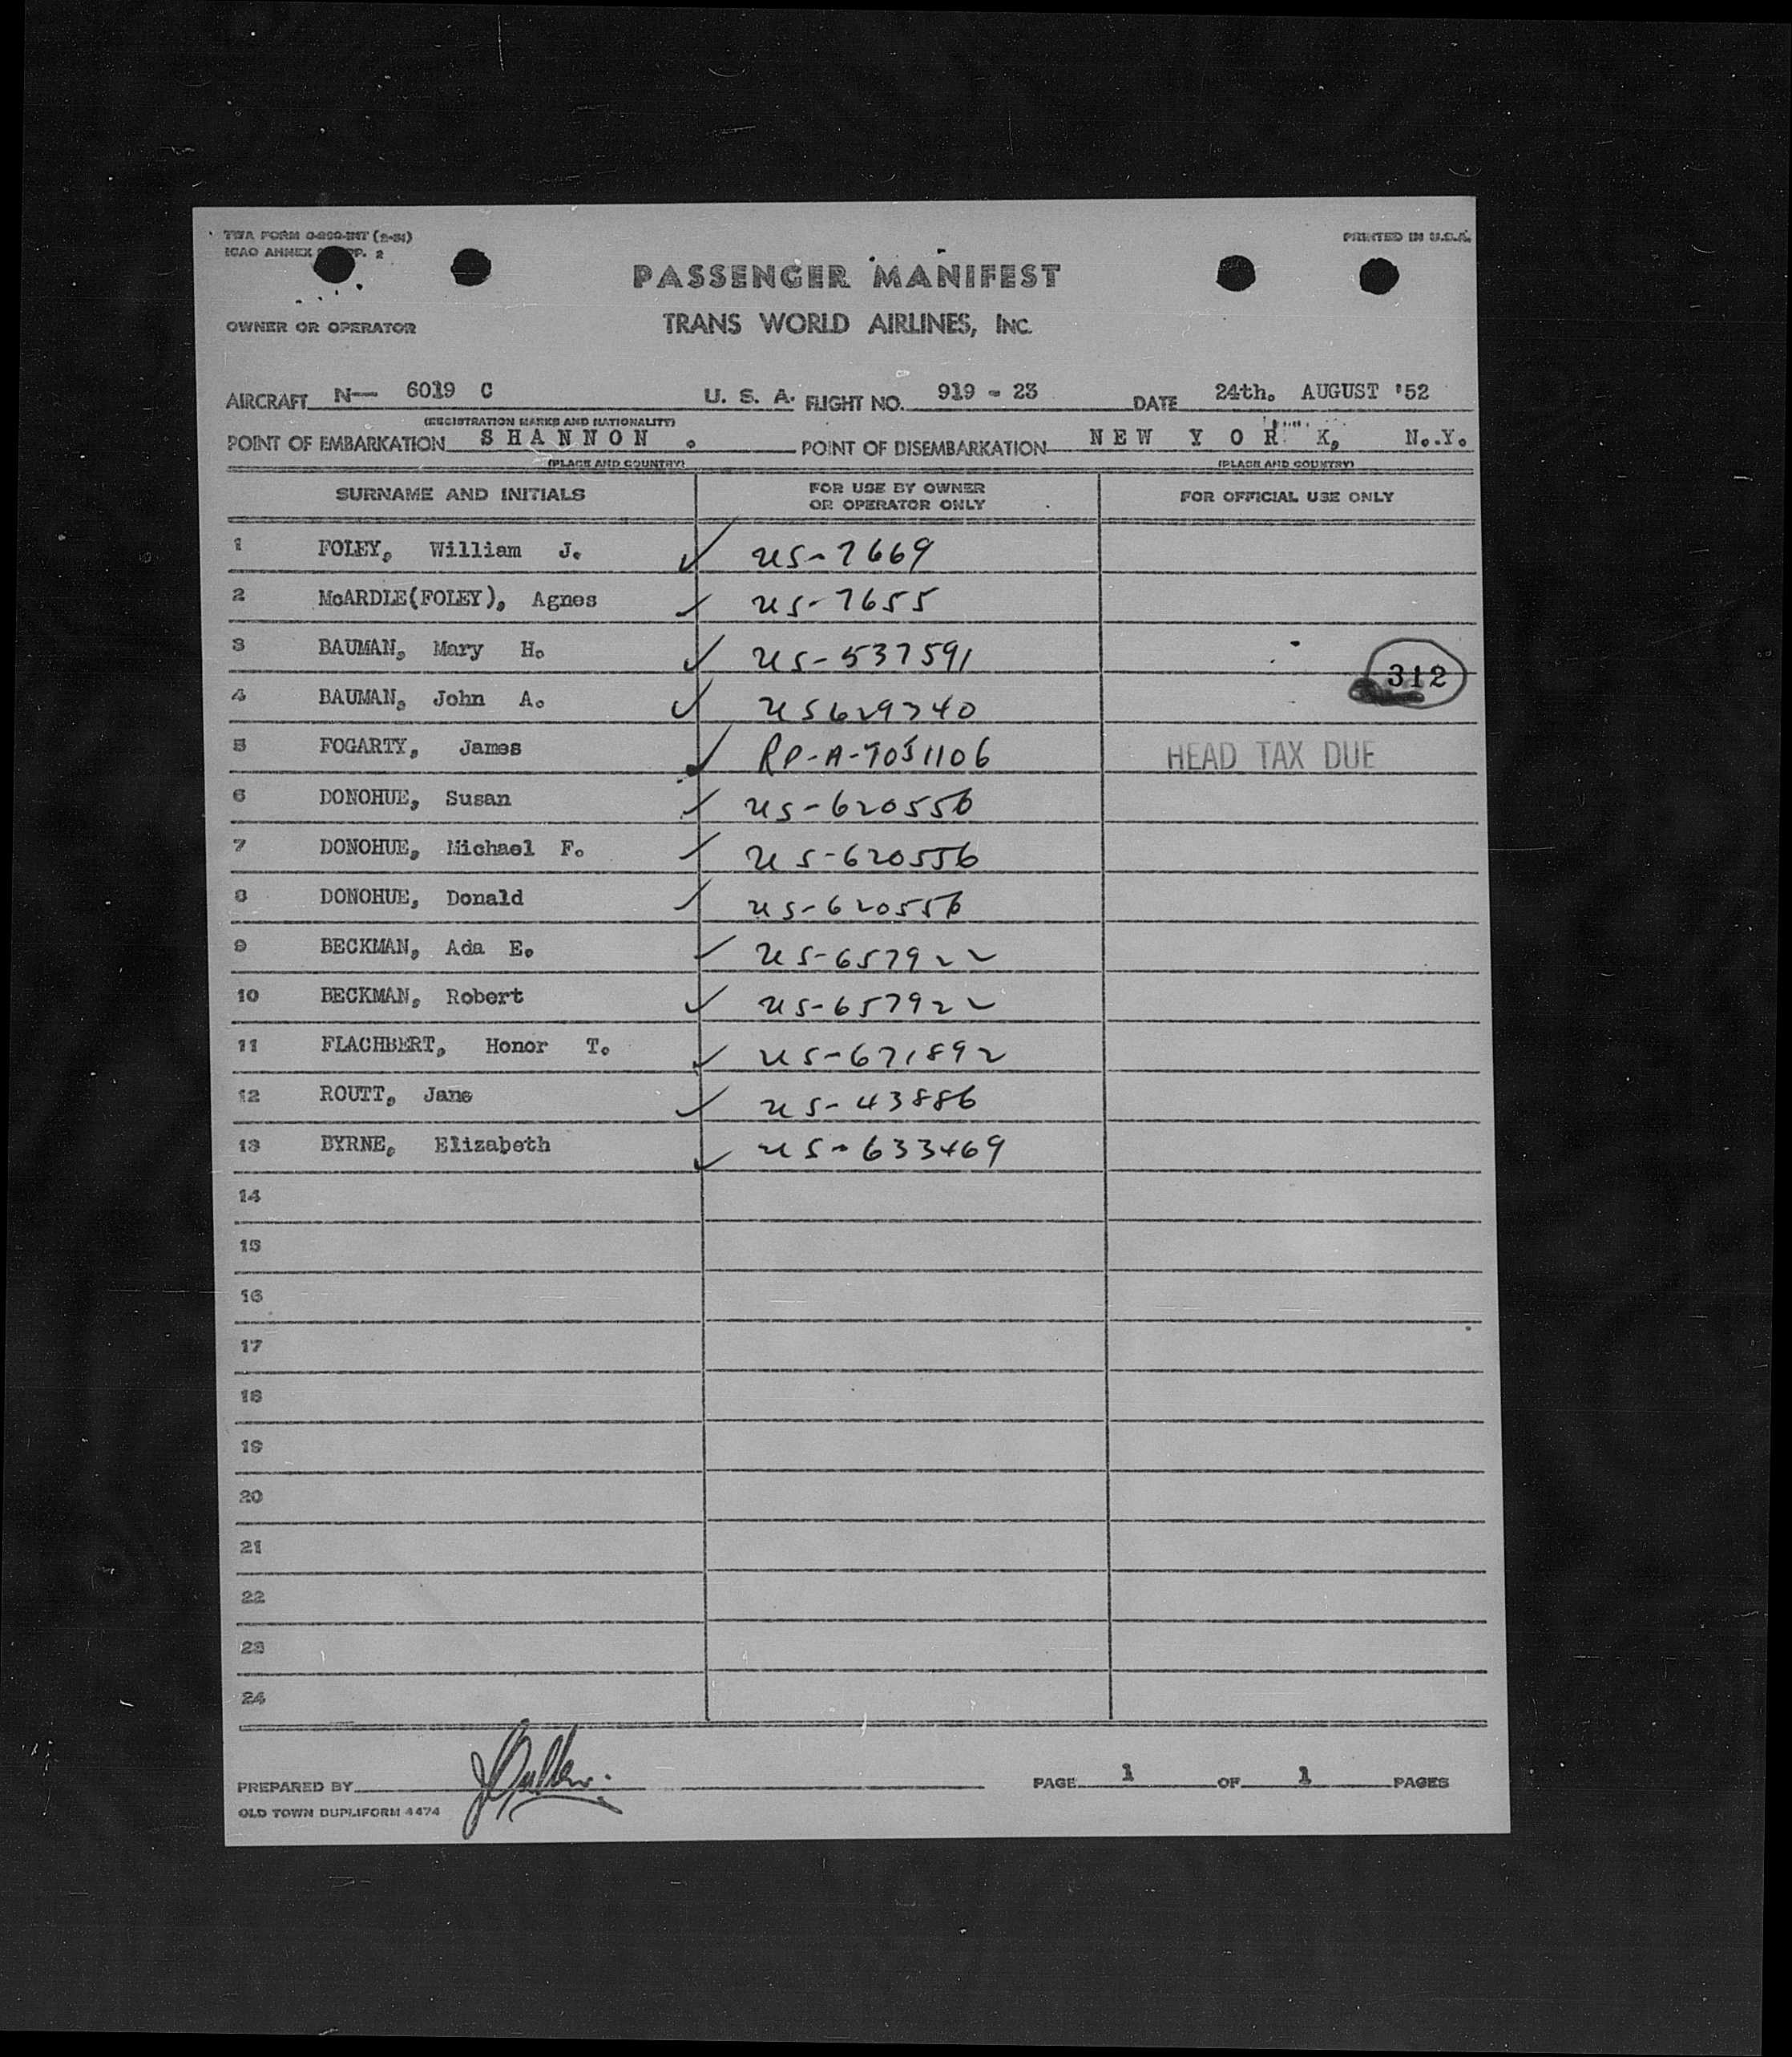 TWA FORM O-290-INT (2-51) PRINTED IN U.S.A.
ICAO ANNEX PP. 2
PASSENGER MANIFEST
OWNER OR OPERATOR TRANS WORLD AIRLINES, INC.
AIRCRAFT N— 6019 C U. S. A. FLIGHT NO. 919 - 23 DATE 24th. AUGUST '52
(REGISTRATION MARKS AND NATIONALITY)
POINT OF EMBARKATION SHANNON . POINT OF DISEMBARKATION NEW YORK, N.Y.
(PLACE AND COUNTRY) (PLACE AND COUNTRY)
SURNAME AND INITIALS FOR USE BY OWNER OR OPERATOR ONLY FOR OFFICIAL USE ONLY
1 FOLEY, William J. ✓ US-7669
2 McARDLE(FOLEY), Agnes ✓ US-7655
3 BAUMAN, Mary H. ✓ US-537591
312
4 BAUMAN, John A. ✓ US629740
5 FOGARTY, James ✓ RP-A-7051106 HEAD TAX DUE
6 DONOHUE, Susan ✓ US-620556
7 DONOHUE, Michael F. ✓ US-620556
8 DONOHUE, Donald ✓ US-620556
9 BECKMAN, Ada E. ✓ US-657922
10 BECKMAN, Robert ✓ US-657922
11 FLACHBERT, Honor T. ✓ US-671892
12 ROUTT, Jane ✓ US-43886
13 BYRNE, Elizabeth ✓ US-633469
14
15
16
17
18
19
20
21
22
23
24
PREPARED BY PAGE 1 OF 1 PAGES
OLD TOWN DUPLIFORM 4474